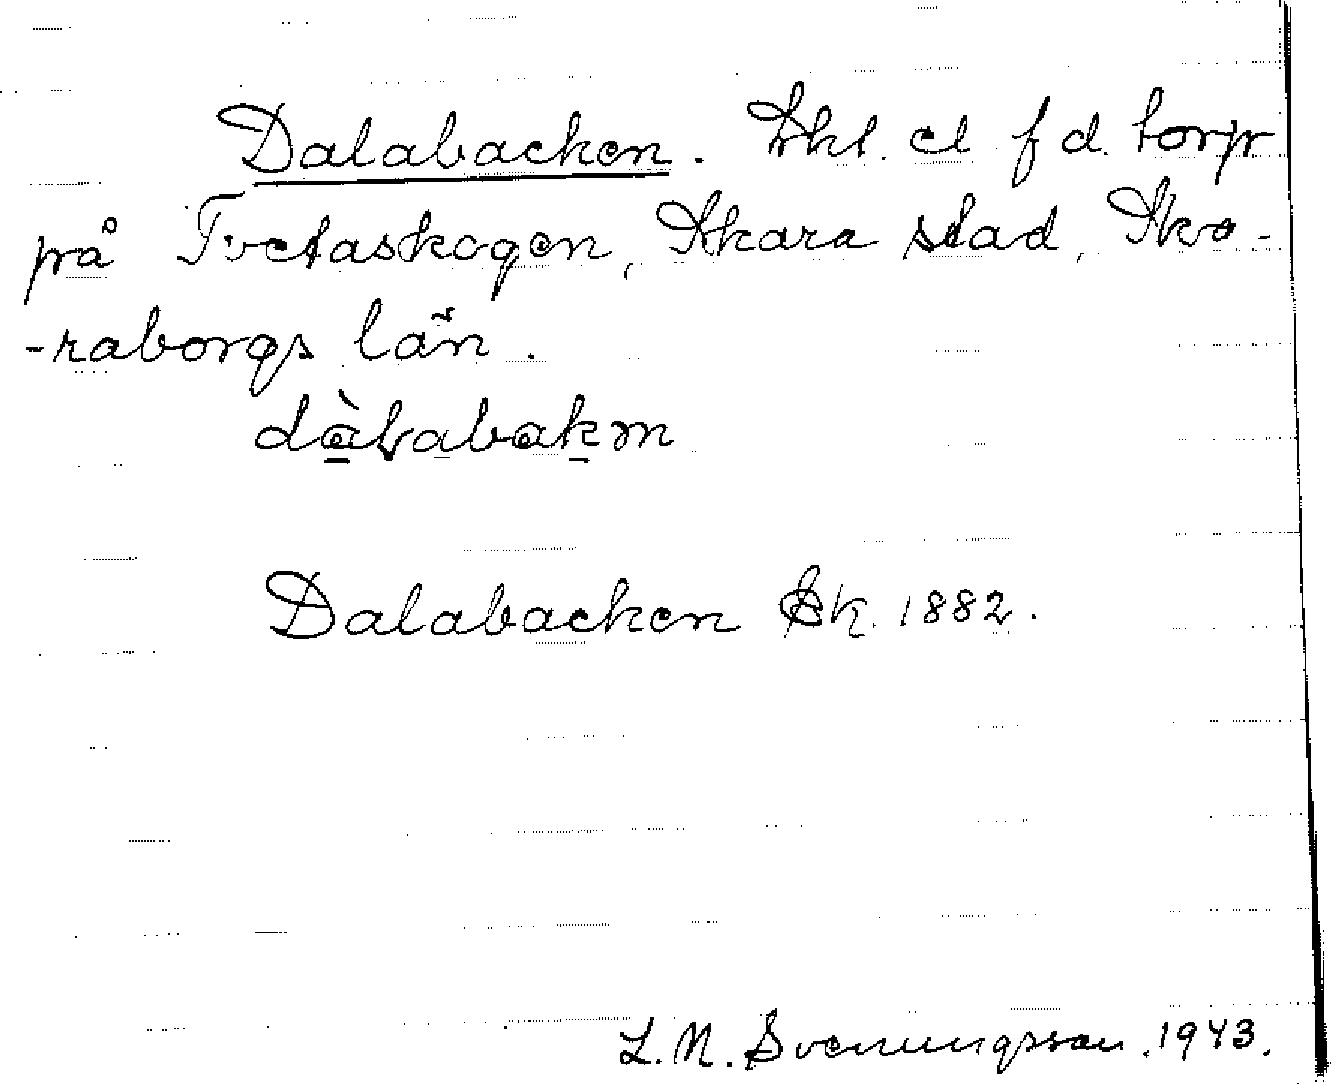 Dalabacken. Skl. el f d. torp
på Tvetaskogen, Skara stad, Ska-
-raborgs län.
dàlabakɱ
Dalabacken Ek. 1882.
L. N. Svenungsson. 1943.